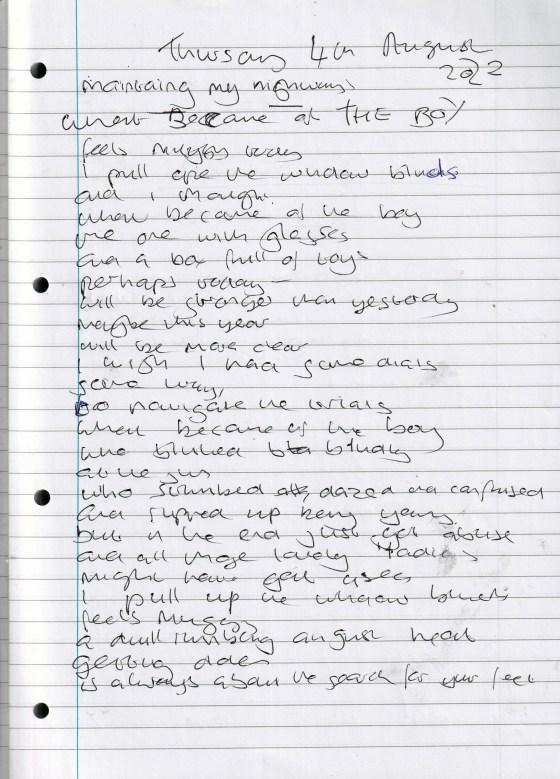 Thursday 4th August
2022
maintaing my highways
what Became of THE BOY
feels muggy today
I pull ope the window blinds
and i thought
what became of the boy
the one with glasses
and a box full of toys
perhaps today -
will be stronger than yesterday
maybe this year
will be more clear
I wish I had some dials
some way,
to navigate the trials
what became of the boy
who blinked blindly
at the sun
who stumbled dazed and confused
and ripped up being young
but in the end just got abuse
and all those lovely
might have got uses
I pull up the window blinds
feels muggy
a dull numbing august heat
getting older
is always about the search for your feet